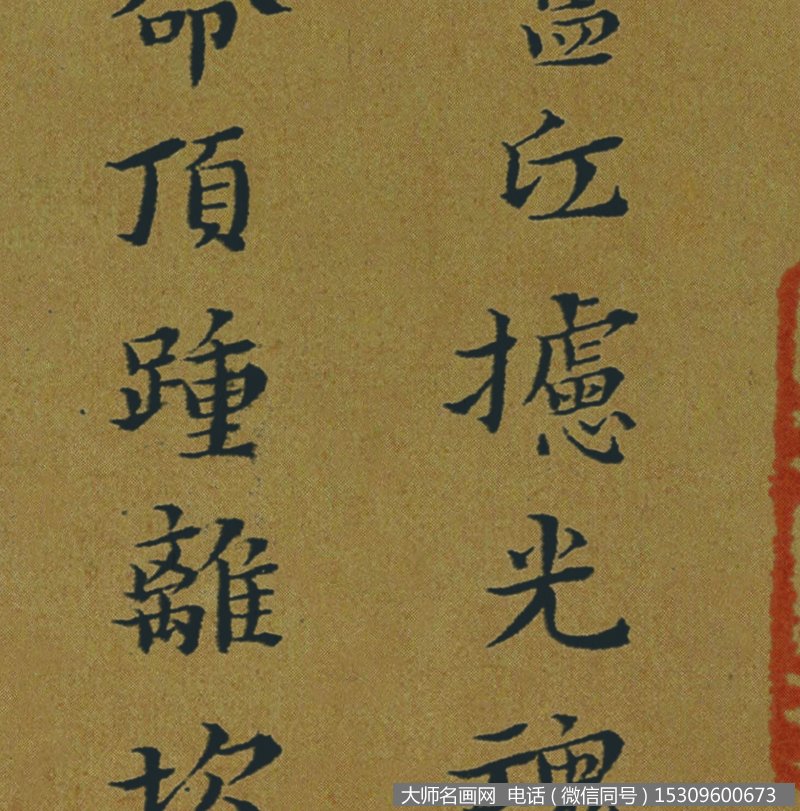 江攄光
命頂踵離坎
大师名画网 电话(微信同号)15309600673